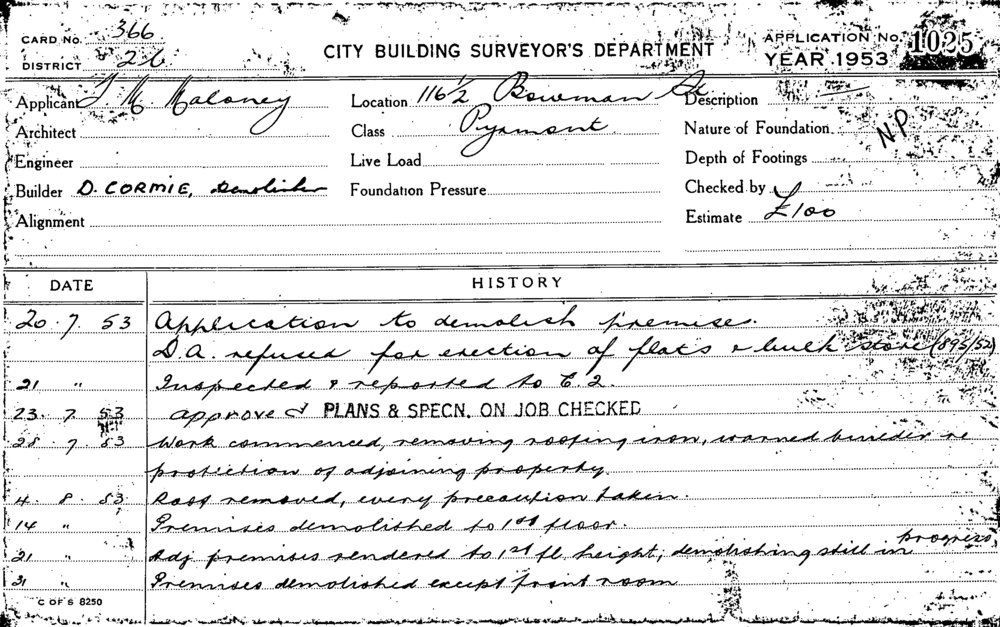 CARD No. 366
DISTRICT 26
CITY BUILDING SURVEYOR'S DEPARTMENT
APPLICATION No. 1025
YEAR 1953
Applicant J M Maloney
Location 116½ Bowman St
Description
Architect
Class Pyrmont
Nature of Foundation NP
Engineer
Live Load
Depth of Footings
Builder D. CORMIE, Demolisher
Foundation Pressure
Checked by
Alignment
Estimate £100
DATE HISTORY
20 . 7 . 53 Application to demolish premises.
D.A. refused for erection of flats & bulk store (893/52)
21 " Inspected & reported to E.2.
23 . 7 . 53 approved PLANS & SPECN. ON JOB CHECKED
28 . 7 . 53 Work commenced, removing roofing iron, warned builder re
protection of adjoining property.
4 . 8 . 53 Roof removed, every precaution taken.
14 " Premises demolished to 1st floor.
21 " Adj. premises rendered to 1st fl. height, demolishing still in progress,
31 " Premises demolished except front room
C OF S 8250